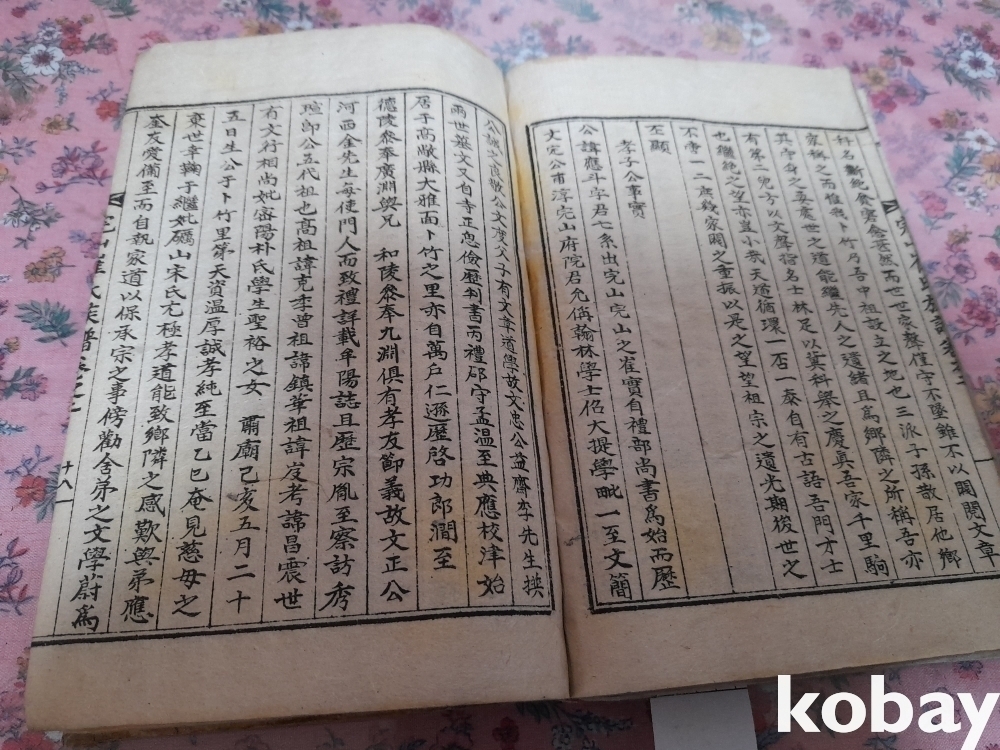 科名斷絶食
不墜雖不以閥閱文章
家稱之而惟我卜竹乃吾中中祖設立之地也三派子孫散居他鄕
其守身之妻處世之道能繼先人之遺緖且爲鄕隣之所稱吾亦
有第二兒方以文聲指名士林足以冀科擧之慶眞吾家千里駒
也繼絶之望亦豈小哉天道循環一否一泰自有古語吾門才士
不啻一二庶幾家閥之重振以是之望望祖宗之遺光期後世之
丕顯
孝子公事實
公諱應斗字君七系出完山完山之崔實自禮部尙書爲始而歷
文定公甫淳完山府院君允偁翰林學士佋大提學毗一至文簡
公誠之良敬公文度父子有文章道學故文忠公益齋李先生撰
兩世墓文又自寺正忽儉歷判書丙禮郡守孟温至典應校津始
居于高敞縣大雅面卜竹之里亦自萬戶仁遜歷啓功郎澗至
德陵參奉廣淵與兄 和陵參奉九淵俱有孝友節義故文正公
河西金先生每使門人而致禮詳載牟陽誌且歷宗胤至察訪秀
瑄郎公五代祖也高祖諱克孝曾祖諱鎮華祖諱岌考諱昌震世
有文行相尙妣密陽朴氏學生聖裕之女 肅廟己亥五月二十
五日生公于卜竹里第天資温厚誠孝純至當乙巳奄見慈母之
棄世幸鞠于繼妣礪山宋氏尤極孝道能致鄕隣之感歎與弟應
奎友愛備至而自執家道以保承宗之事傍勸舍弟之文學蔚爲
完山崔氏族譜卷之
十八
完山崔氏族譜卷之
kobay